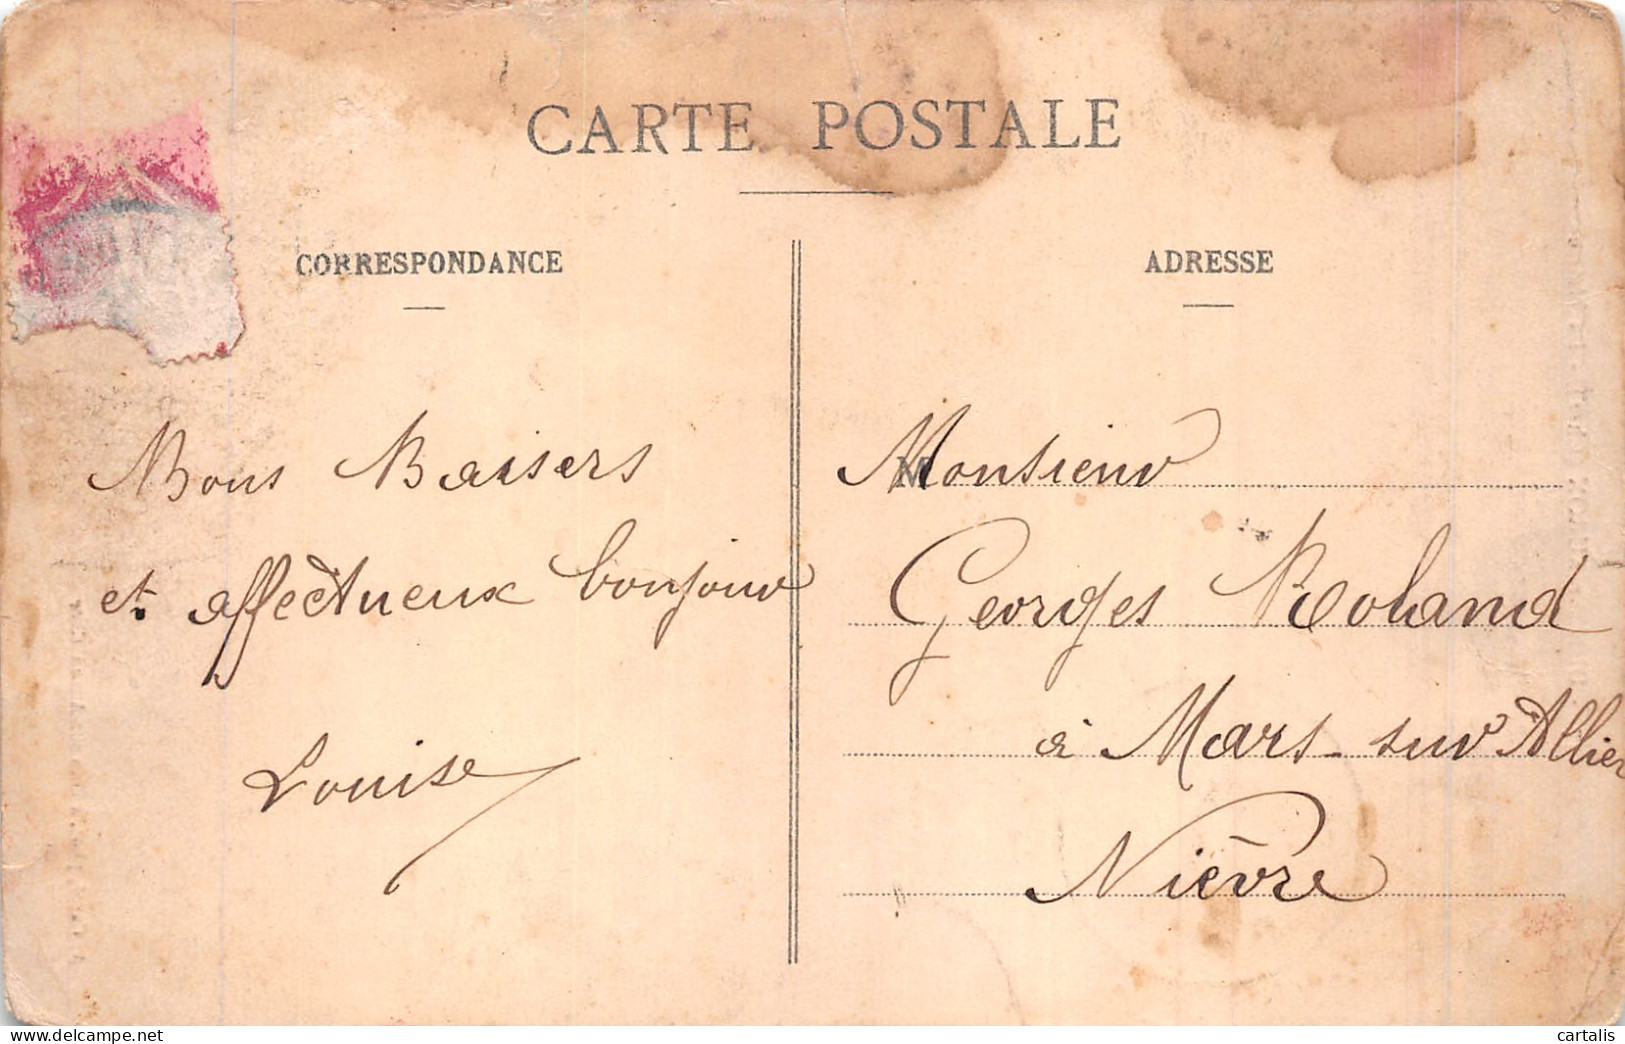 CARTE POSTALE
CORRESPONDANCE
Bons Baisers
et affectueux bonjour
Louise
ADRESSE
Monsieur
Georges Roland
à Mars-sur Allier
Nièvre
www.delcampe.net
cartalis